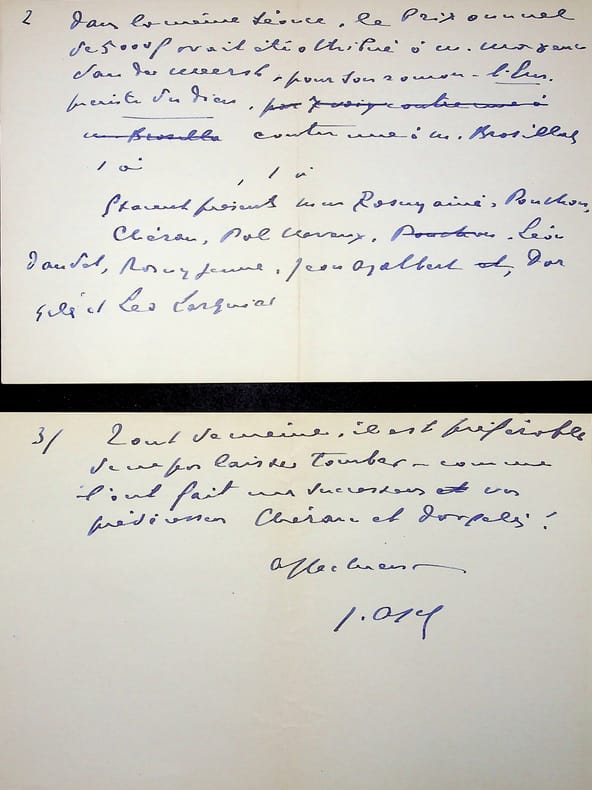 2 Dans la même séance, le Prix annuel
de 5000f avait été attribué à M. Maxence
Van der Meersch, pour son roman - l'Em-
preinte du Dieu, par 7 voix contre une à
M. Brosilla contre une à M. Brasillach
1 à , 1 à
Étaient présents MM Rosny aîné, Ponchon,
Chérau, Pol Neveux, Ponchon, Léon
Daudet, Rosny jeune, Jean Ajalbert et, Dor
gelès et Leo Larguier
3/ Tout de même, il est préférable
de ne pas laisser tomber - comme
l'ont fait vos successeurs et vos
prédécesseurs Chérau et Dorgelès !
Affectueusement
J. A